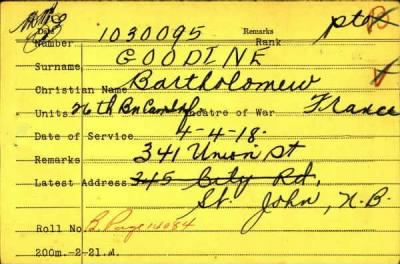 Date Remarks
Number 1030095 Rank pte
Surname GOODINE
Christian Name Bartholomew
Units 26th Bn Can Inf Theatre of War France
Date of Service 4-4-18.
Remarks 341 Union St
Latest Address 345 City Rd,
St. John, N.B.
Roll No. B. Page 14084
200m.-2-21.M.